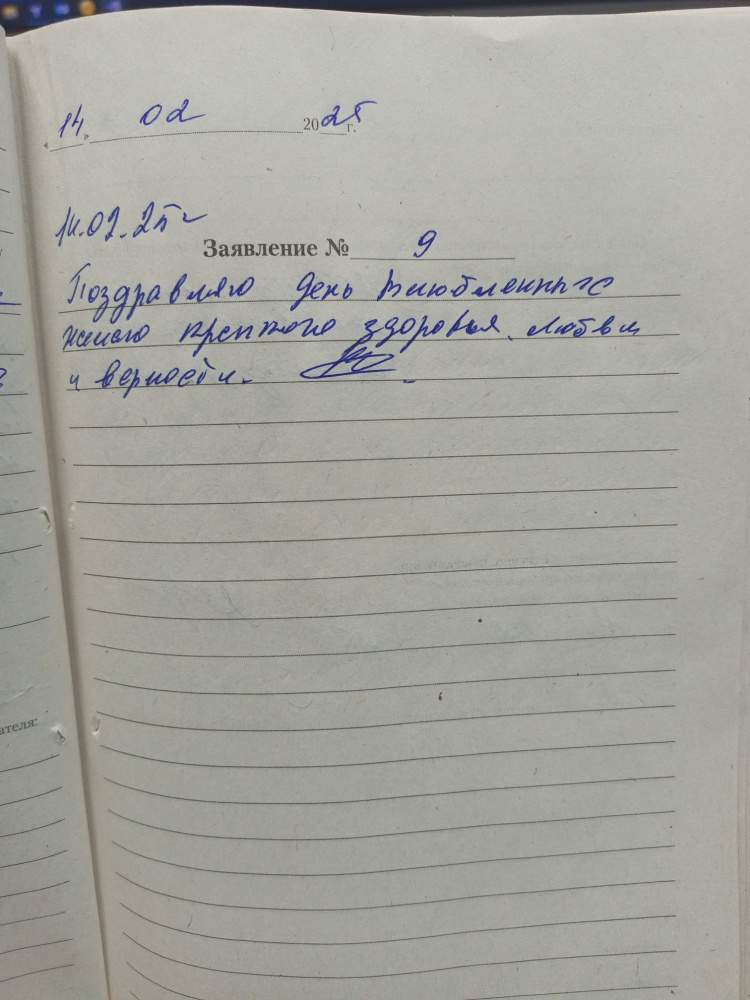 «14» 02 2025 г.
14.02.25 г
Заявление № 9
Поздравляю день влюбленных
желаю крепкого здоровья, любви
и верности.
ателя: